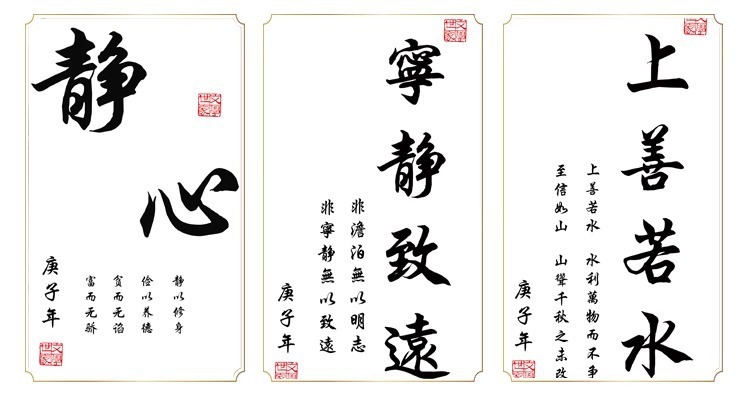 静心
静以修身
俭以养德
贫而无谄
富而无骄
庚子年
寧静致遠
非澹泊無以明志
非寧静無以致遠
庚子年
上善若水
上善若水 水利萬物而不争
至信如山 山聳千秋之未改
庚子年